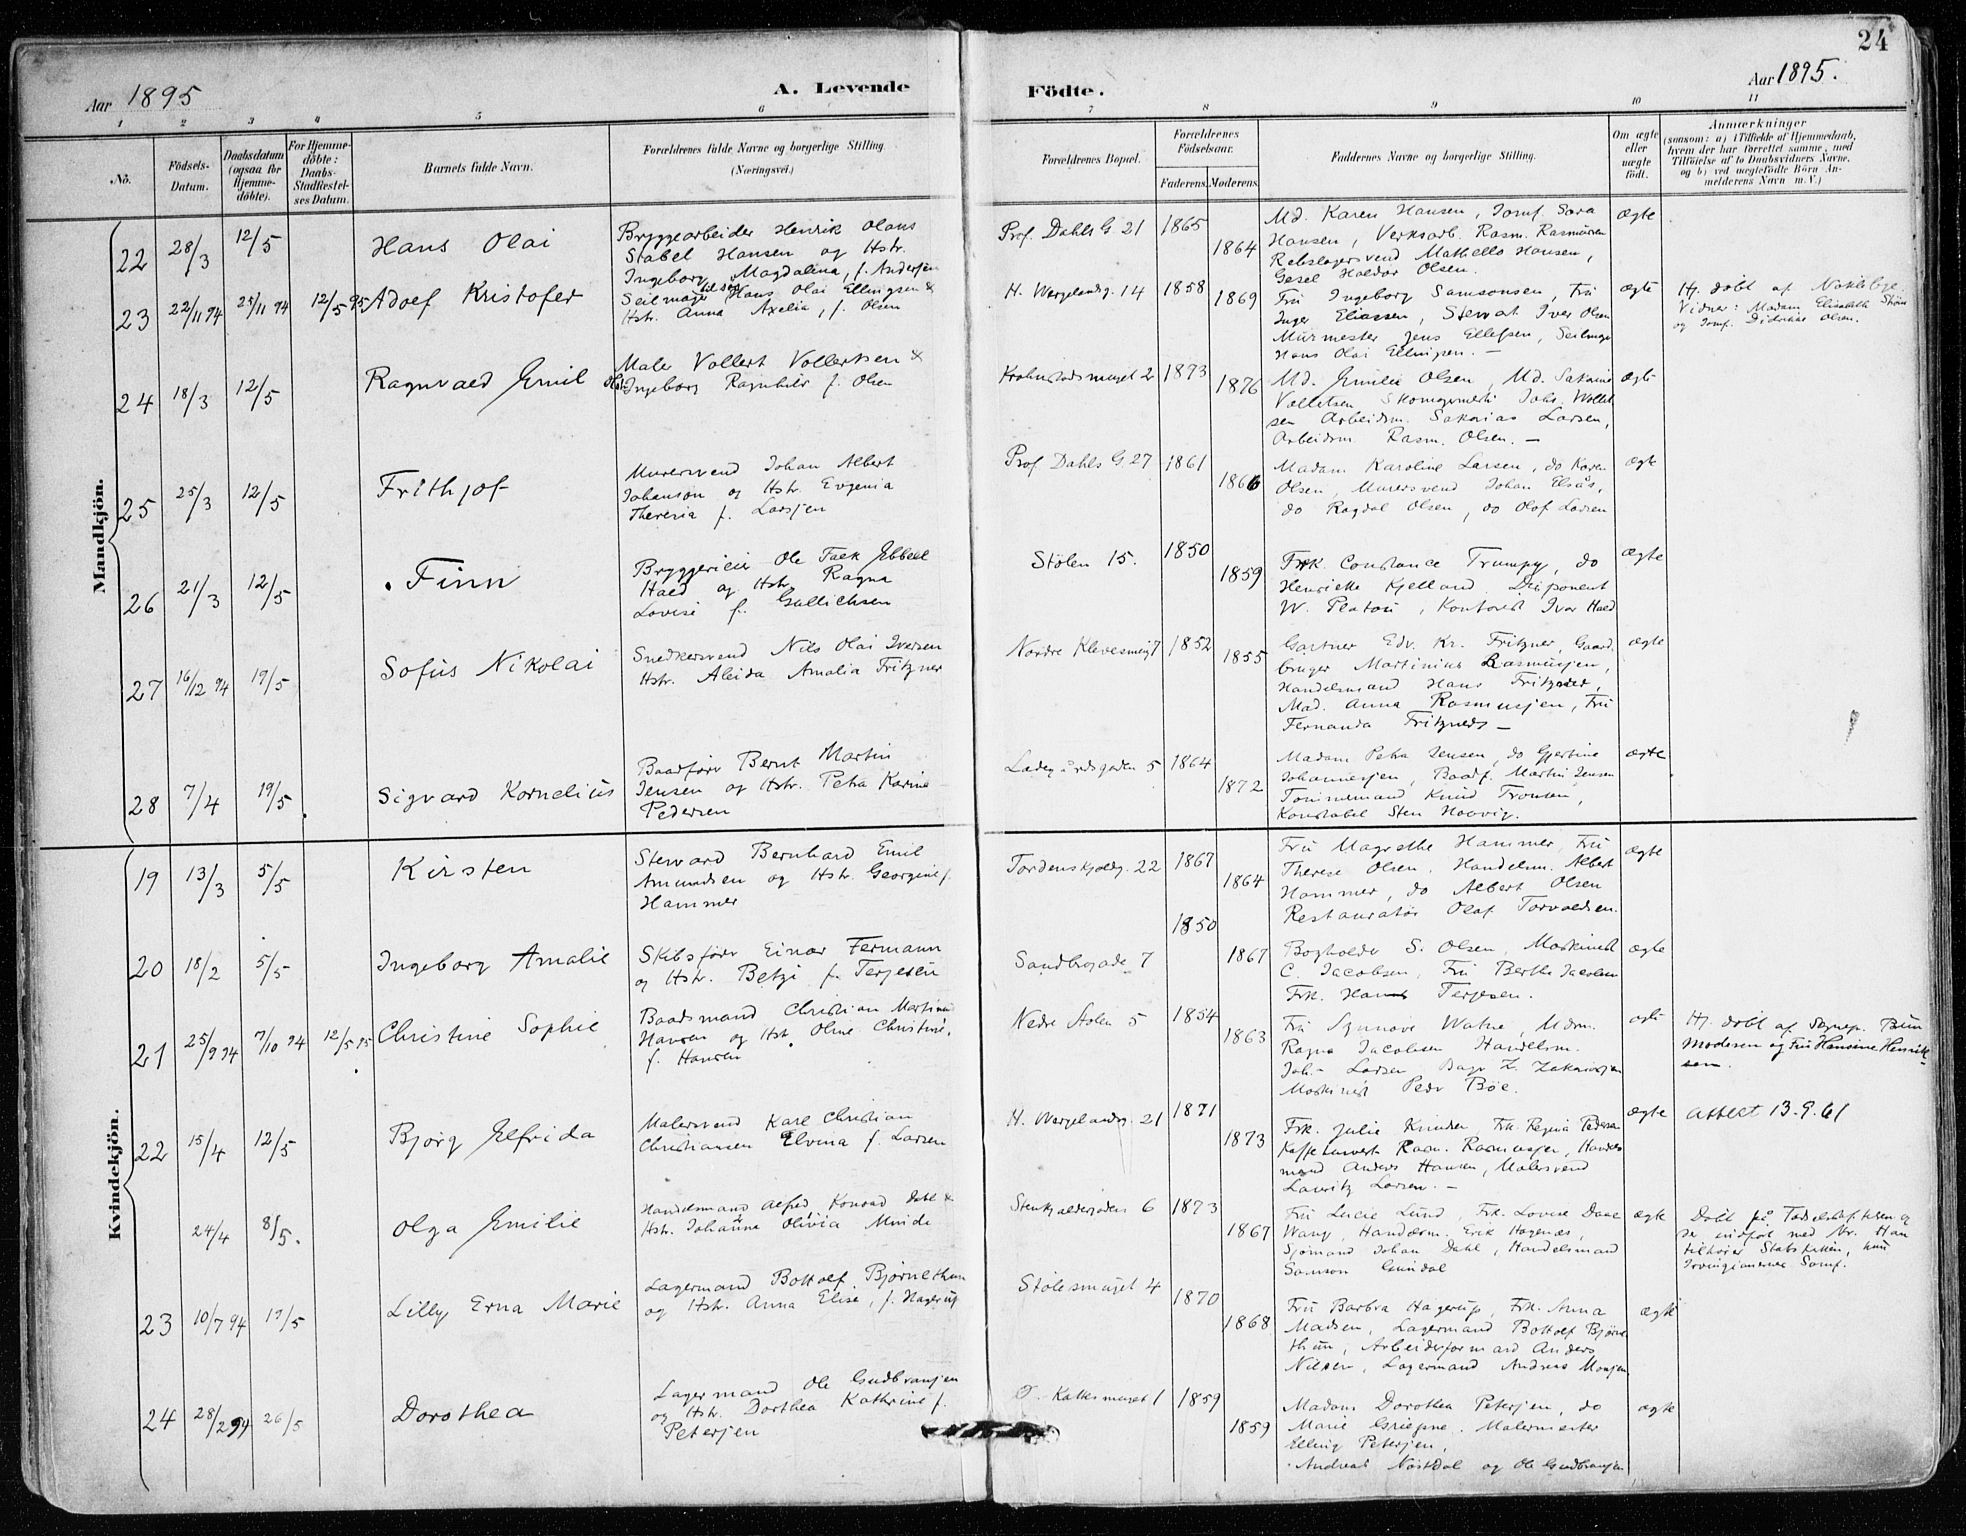 24
Aar 1895
A. Levende
Födte.
Aar 1895.
1 2 3 4 5 6 7 8 9 10 11
No.
Födsels-
Datum.
Daabsdatum
(ogsaa for
Hjemme-
döbte).
For Hjemme-
döbte:
Daabs-
Stadfæstel-
ses Datum.
Barnets fulde Navn.
Forældrenes fulde Navne og borgerlige Stilling.
(Næringsvei.)
Forældrenes Bopæl.
Forældrenes
Födselsaar.
Faderens.
Moderens.
Faddernes Navne og borgerlige Stilling.
Om ægte
eller
uægte
födt.
Anmærkninger
(saasom: a) i Tilfælde af Hjemmedaab,
hvem der har forrettet samme, med
Tilföielse af to Daabsvidners Navne,
og b) ved uægtefödte Börn An-
melderens Navn m. V.)
Mandkjön.
22 28/3 12/5 Hans Olai
Bryggearbeider Henrik Olaus
Stabel Hansen og Hstr.
Ingeborg Magdalina, f. Andersen
Prof. Dahls G 21 1865 1864
Md. Karen Hansen, Jomf. Sara
Hansen, Verksarb. Rasm. Rasmussen
Rebslagersvend Mathello Hansen,
Gesel Haldor Olsen.
ægte
23 22/11 94 25/11 94 12/5 95 Adolf Kristofer
Seilmager Hans Olai Ellingsen &
Hstr. Anna Axelia, f. Olsen
H. Wergelandsg. 14 1858 1869
Fru Ingeborg Samsonsen, Fru
Inger Eliassen, Stervat Iver Olsen
Murmester Jens Ellefsen, Seilmager
Hans Olai Ellingsen. —
ægte
Hj. døbt af
Vidner: Madam Elisabeth Strøm
og Jomf. Didrikke Olsen.
24 18/3 12/5 Ragnvald Emil
Maler Vollert Vollertsen &
Hstr. Ingeborg Ragnhild f. Olsen
Krohnstadsmuget 2 1873 1876
Md. Emilie Olsen, Md. Sakarine
Vollertsen Skomagermestr Johs. Vollert
sen Arbeidsm. Sakarias Larsen,
Arbeidsm. Rasm. Olsen. —
ægte
25 25/3 12/5 Frithjof
Murersvend Johan Albert
Johanson og Hstr. Evgenia
Theresia f. Larsen
Prof. Dahls G. 27 1861 1866
Madam Karoline Larsen, do Karen
Olsen, Murersvend Johan Elsås,
do Ragdal Olsen, do Olof Larsen
ægte
26 21/3 12/5 Finn
Bryggerieier Ole Falk Ebbell
Hald og Hstr. Ragna
Lovise f. Gullichsen
Stølen 15. 1850 1859
Frk. Constance Trumpy, do
Henriette Kjelland, Disponent
W. Platou, Kontorist Ivar Hald
ægte
27 16/12 94 19/5 Sofus Nikolai
Snedkersvend Nils Olai Iversen
Hstr. Aleida Amalia Fritzner
Nordre Klevesmug 7 1852 1855
Gartner Edv. Kr. Fritzner, Gaard
bruger Martinius Rasmussen,
Handelsmand Hans Fritzner,
Mad. Anna Rasmussen, Fru
Fernanda Fritzner. —
ægte
28 7/4 19/5 Sigvard Kornelius
Baadfører Bernt Martin
Jensen og Hstr. Petra Karine
Pedersen
Ladegårdsgaden 5 1864 1872
Madam Petra Jensen, do Gjertine
Johannesen, Baadf. Martin Jensen
Tømmermand Knud Tronsen,
Konstabel Sten Hovvig.
ægte
Kvindekjön.
19 13/3 5/5 Kirsten
Stervard Bernhard Emil
Amundsen og Hstr. Georgine f.
Hammer
Tordenskjoldsg. 22 1867 1864
Fru Magrethe Hammer, Fru
Therese Olsen. Handelsm. Albert
Hammer, do Albert Olsen
Restauratør Olaf Torvaldsen.
ægte
20 18/2 5/5 Ingeborg Amalie
Skibsfører Einar Fermann
og Hstr. Betzi f. Terjesen
Sandbrogade 7 1850 1867
Bogholder S. Olsen, Maskinist
C. Jacobsen, Fru Berthe Jacobsen
Frk. Hanna Terjesen.
ægte
21 25/9 94 7/10 94 12/5 95 Christine Sophie
Baadsmand Christian Martinus
Hansen og Hstr. Oline Christine,
f. Hansen
Nedre Stølen 5 1854 1863
Fru Synnøve Watne, Mdm.
Ragna Jacobsen Handelsm.
Joh. Larsen Bager Z. Zakariasen
Maskinist Peder Bøe.
ægte
Hj. døbt af Sognepr. Bruun
Moderen og Fru Hansine Henrik
sen.
22 15/4 12/5 Bjørg Elfrida
Malersvend Karl Christian
Christiansen Elvina f. Larsen
H. Wergelandsg. 21 1871 1873
Frk. Julie Knudsen, Frk. Regina Pedersen
Rasm. Rasmussen, Handels
mand Anders Hansen, Malersvend
Lauritz Larsen. —
ægte
Attest 13.9.61
24/4 8/5. Olga Emilie
Handelsmand Alfred Konrad Dahl &
Hstr. Johanna Olivia Minde
Stenkjeldergaden 6 1873 1867
Fru Lucie Lund, Frk. Lovise Dale
Wang, Handelsm. Erik Hagenæs,
Sjømand Johan Dahl, Handelsmand
Samson Gundal
ægte
Døbt på Fødselsstiftelsen og
der indført med Nr. Han
tilhører Statskirken, hun
Irvingianernes Samf.
23 10/7 94 19/5 Lilly Erna Marie
Lagermand Bottolf Bjørnethun
og Hstr. Anna Elise, f. Hagerup
Stølesmuget 4 1870 1868
Fru Barbra Hagerup, Frk. Anna
Madsen, Lagermand Bottolf Bjørne
thun, Arbeiderformand Anders
Nilsen, Lagermand Andreas Monsen
ægte
24 28/2 94 26/5 Dorothea
Lagermand Ole Gudbransen
og Hstr. Dorthea Kathrine f.
Petersen
Ø. Kalksmuget 1 1859 1859
Madam Dorothea Petersen, do
Marie Malermester
Elling Petersen,
Andreas Nøstdal og Ole Gudbransen
ægte